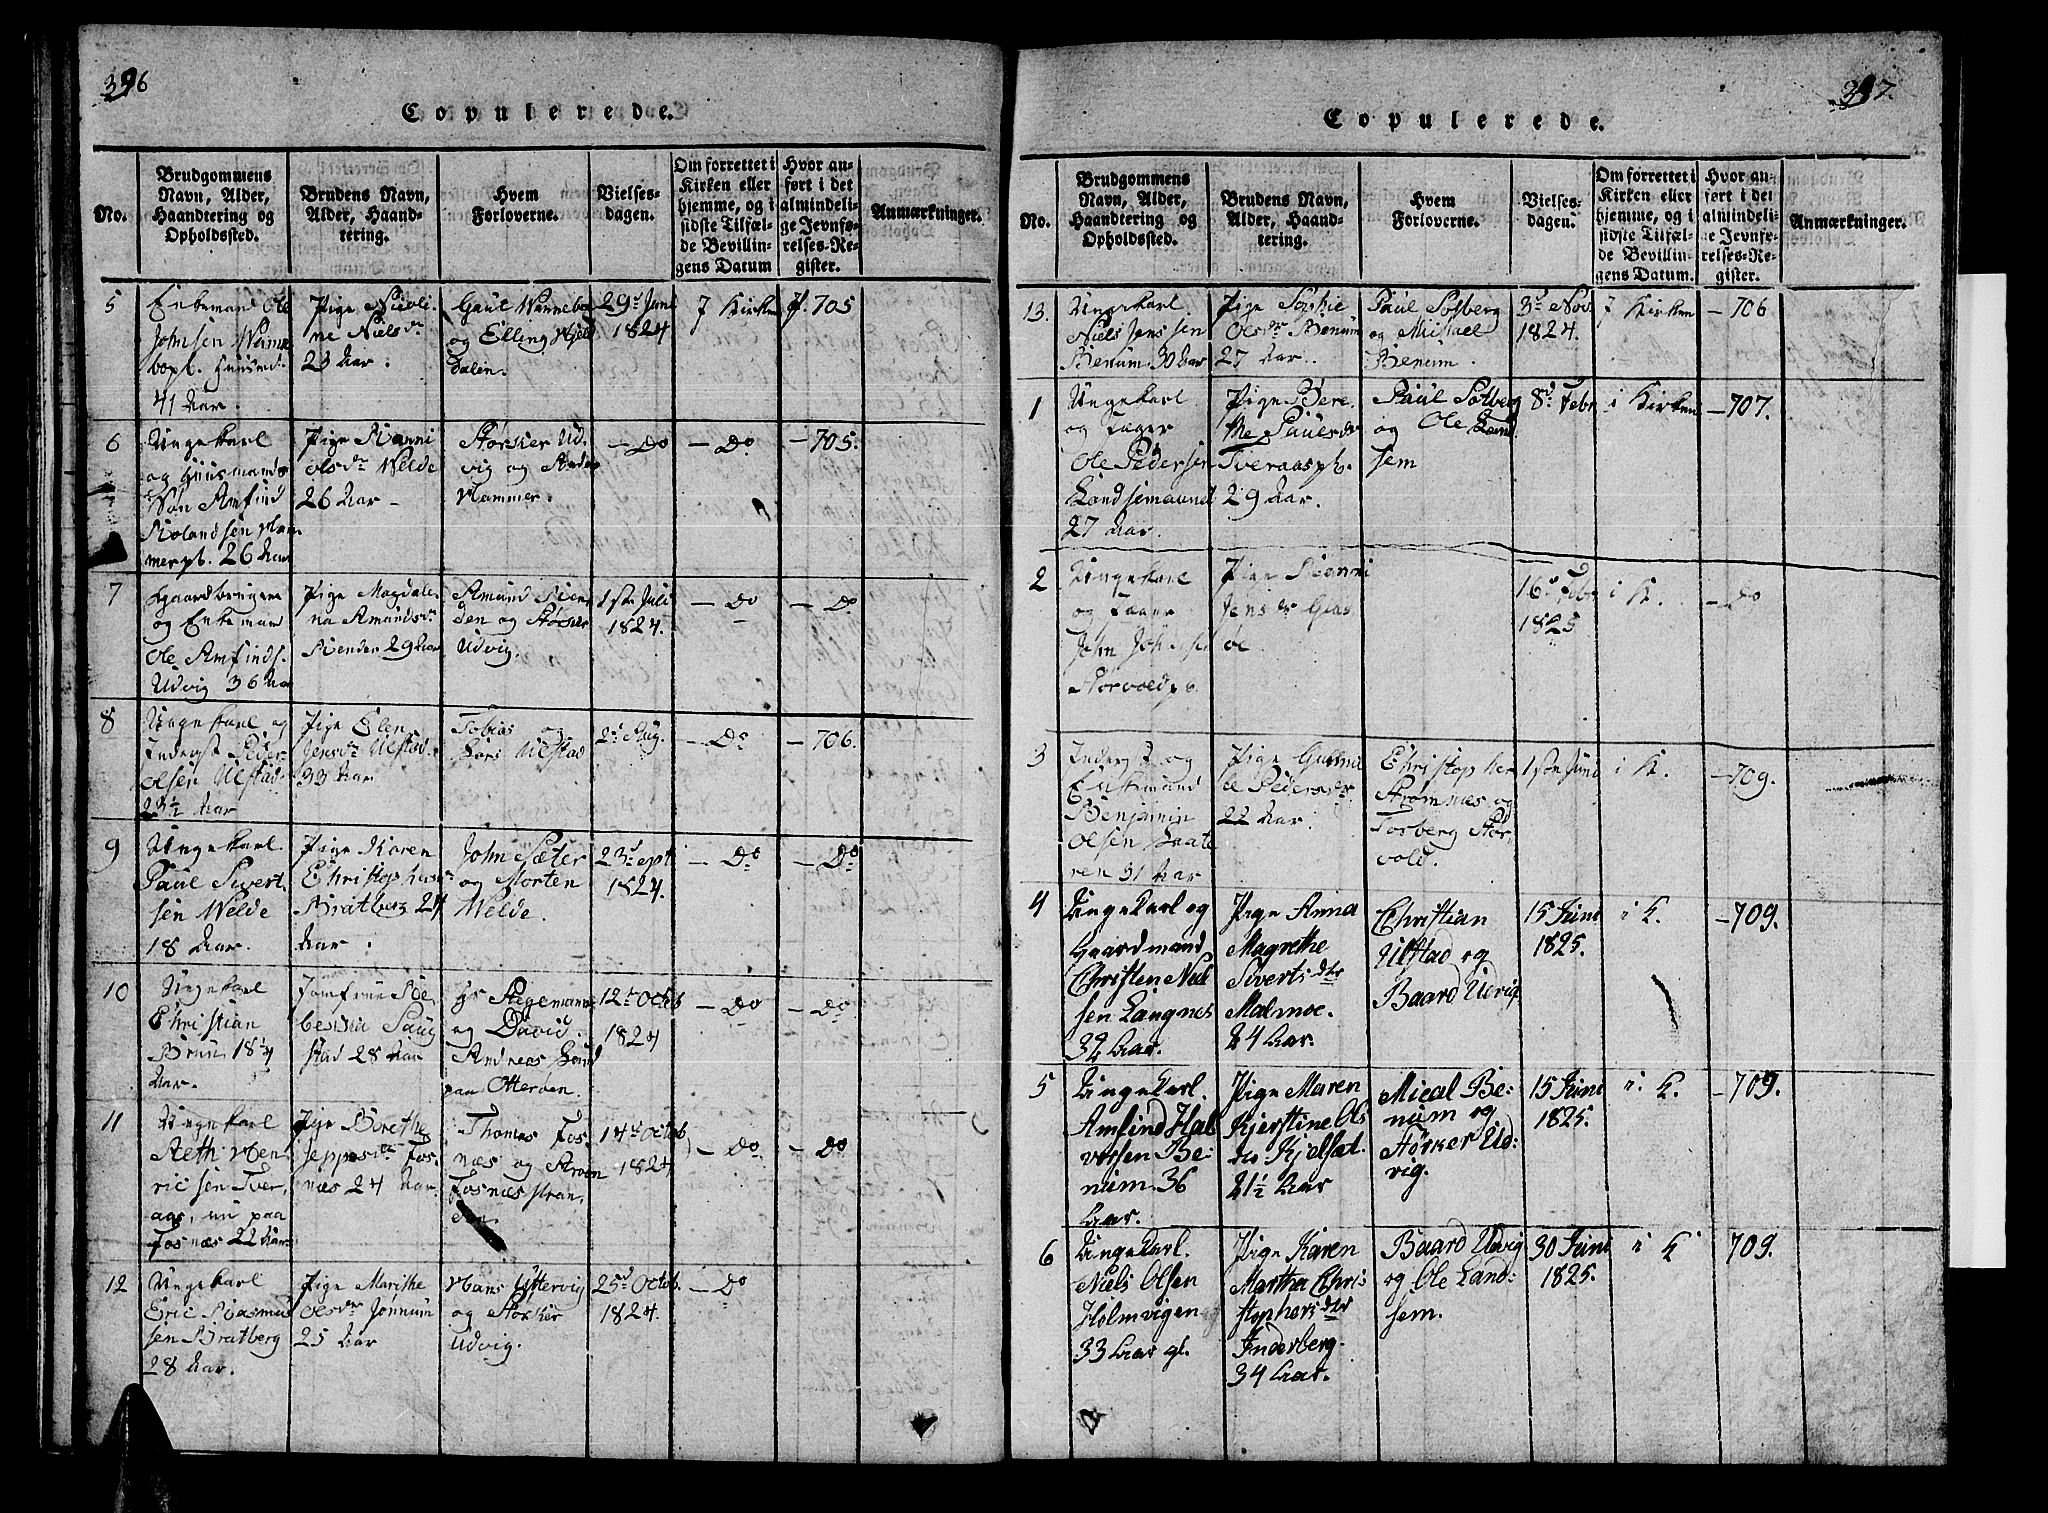 396
Copulerede.
No.
Brudgommens
Navn, Alder,
Haandtering og
Opholdssted.
Brudens Navn,
Alder, Haand-
tering.
Hvem
Forloverne.
Vielses-
dagen.
Om forrettet i
Kirken eller
hjemme, og i
sidste Tilfæl-
de Bevillin-
gens Datum
Hvor an-
ført i det
almindeli-
ge Jevnfø-
relses-Re-
gister.
Anmærkninger.
5
Enkemand Ole
Johnsen
41 Aar.
Pige Nicoli-
ne Nielsdr
23 Aar.
og Elling
29d Juni
1824
J Kirken
705
6
Ungekarl
og Huusmands
Søn Amfind
Rolandsen Ham
merpl. 26 Aar
Pige Ranni
Olsdr Welde
26 Aar
Størker Ud-
vig og
Hammer.
Do
Do
705.
7
Gaardbruger
og Enkemand
Ole Amfinds.
Udvig 36 Aar
Pige Magdale-
na Amunds
29 Aar
Amund
den og Størker
Udvig.
1ste Juli
1824.
Do
Do
8
Ungekarl og
Inderst Peder
Olsen Ulstad
Aar
Pige Elen
Jensdr Ulstad.
33 Aar
Tobias og
Lars Ulstad
2d Aug.
Do
706.
9
Ungekarl.
Paul Sivert
sen Welde
18 Aar.
Pige Karen
Christophers
Bratberg 24
Aar.
John Sæter
og Morten
Welde.
23d Sept
1824.
Do
Do
10
Ungekarl
Christian
Bruun 18¼
Aar.
Jomfrue Re-
becka
stad 28 Aar
Hr Stegemann
og David
Andreas Lund
paa Otterøen.
12t Octob
1824
Do
Do
11
Ungekarl
Hen
ricsen Tver,
aas, nu paa
Fosnæs 22 Aar
Pige Berethe
Jeppesdr Fos
næs 24 Aar.
Thomas Fos
næs og
Fosnæsstran,
den.
14t Octob
1824
Do
Do
12
Ungekarl
Eric Rasmus
sen Bratberg
28 Aar.
Pige Marithe
Olsdr Jønnum
25 Aar
Hans Yttervig
og Størker
Udvig.
25d Octob.
1824.
Do
397.
Copulerede.
No.
Brudgommens
Navn, Alder,
Haandtering og
Opholdssted.
Brudens Navn,
Alder, Haand-
tering.
Hvem
Forloverne.
Vielses-
dagen.
Om forrettet i
Kirken eller
hjemme, og i
sidste Tilfæl-
de Bevillin-
gens Datum.
Hvor an-
ført i det
almindeli-
ge Jevnfø-
relses-Re-
gister.
Anmærkninger.
13.
Ungekarl.
Niels Jenssen
Benum 30 Aar
Pige Sophie
Olsdr Benum
27 Aar.
Paul Solberg
og Michael
Benum.
3d Nov.
1824.
J Kirken
706
1
Ungekarl
og Jæger
Ole Pedersen
Landsemaunet
27 Aar.
Pige Bere-
the Paulsdr
Tveraaspl.
29 Aar.
Paul Solberg
og Ole Land
sem
8d Febr
i Kirken
707.
2
Ungekarl
og Jæger
John Johnsen
Storvoldpl.
Pige Ranni
Jensdr Glas
øe
16d Febr
1825
i K.
Do
3
Inderst og
Enkemand
Benjamin
Olsen
ren 31 Aar
Pige
Pedersdr.
22 Aar.
Christopher
Strømnes og
Torberg Stor
vold.
1ste Juni
i K.
709.
4
Ungekarl og
Gaardmand
Christen Niel
sen Langnes
32 Aar.
Pige Anna
Magrethe
Sivertsdter
Malmoe.
24 Aar.
Christian
Ulstad og
Baard Udvig
15 Juni
1825.
i K.
709.
5
Ungekarl.
Amfind Hal
vorsen Be-
num. 36
Aar.
Pige Maren
Kjerstine Ols
dtr. Kjelsæt.
21½ Aar
Micael Be-
num og
Størker Ud-
vig.
15 Juni
1825.
i. K.
709.
6
Ungekarl.
Niels Olsen
Holmvigen
33 Aar gl.
Pige Karen
Martha Chris
stophersdter
Inderberg.
34 Aar.
Baard Udvig
og Ole Land-
sem.
30 Juni
1825.
i K
709.